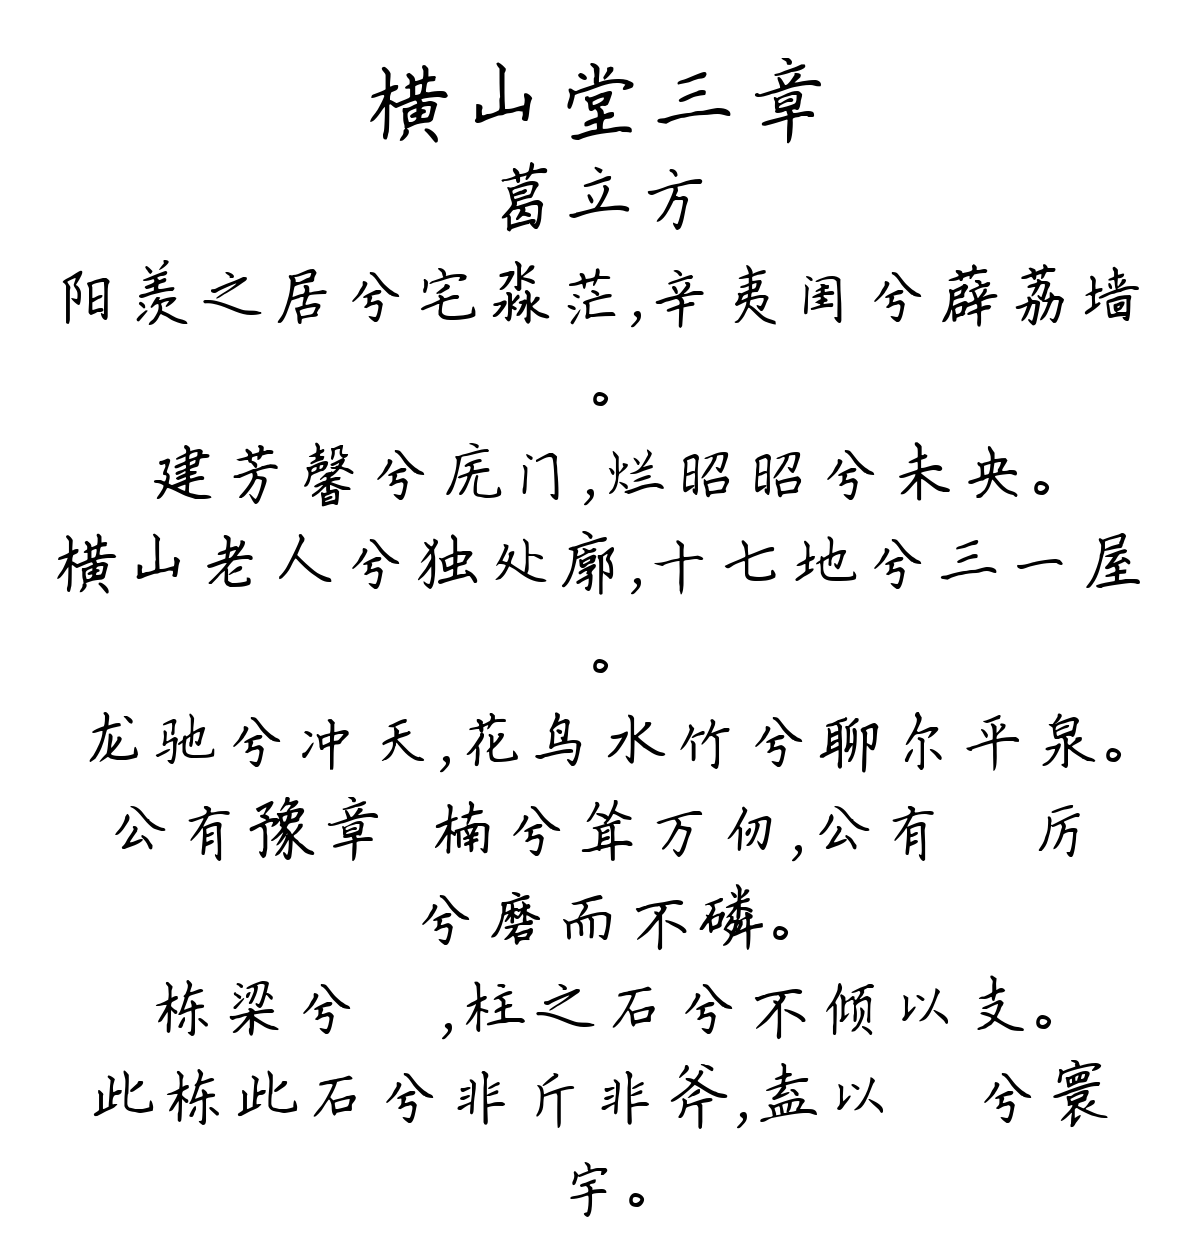 横山堂三章
葛立方
阳羡之居兮宅淼茫,辛夷闺兮薜荔墙
。
建芳馨兮庑门,烂昭昭兮未央。
横山老人兮独处廓,十七地兮三一屋
。
龙驰兮冲天,花鸟水竹兮聊尔平泉。
公有豫章 楠兮耸万仞,公有 厉
兮磨而不磷。
栋梁兮 ,柱之石兮不倾以支。
此栋此石兮非斤非斧,盍以 兮寰
宇。